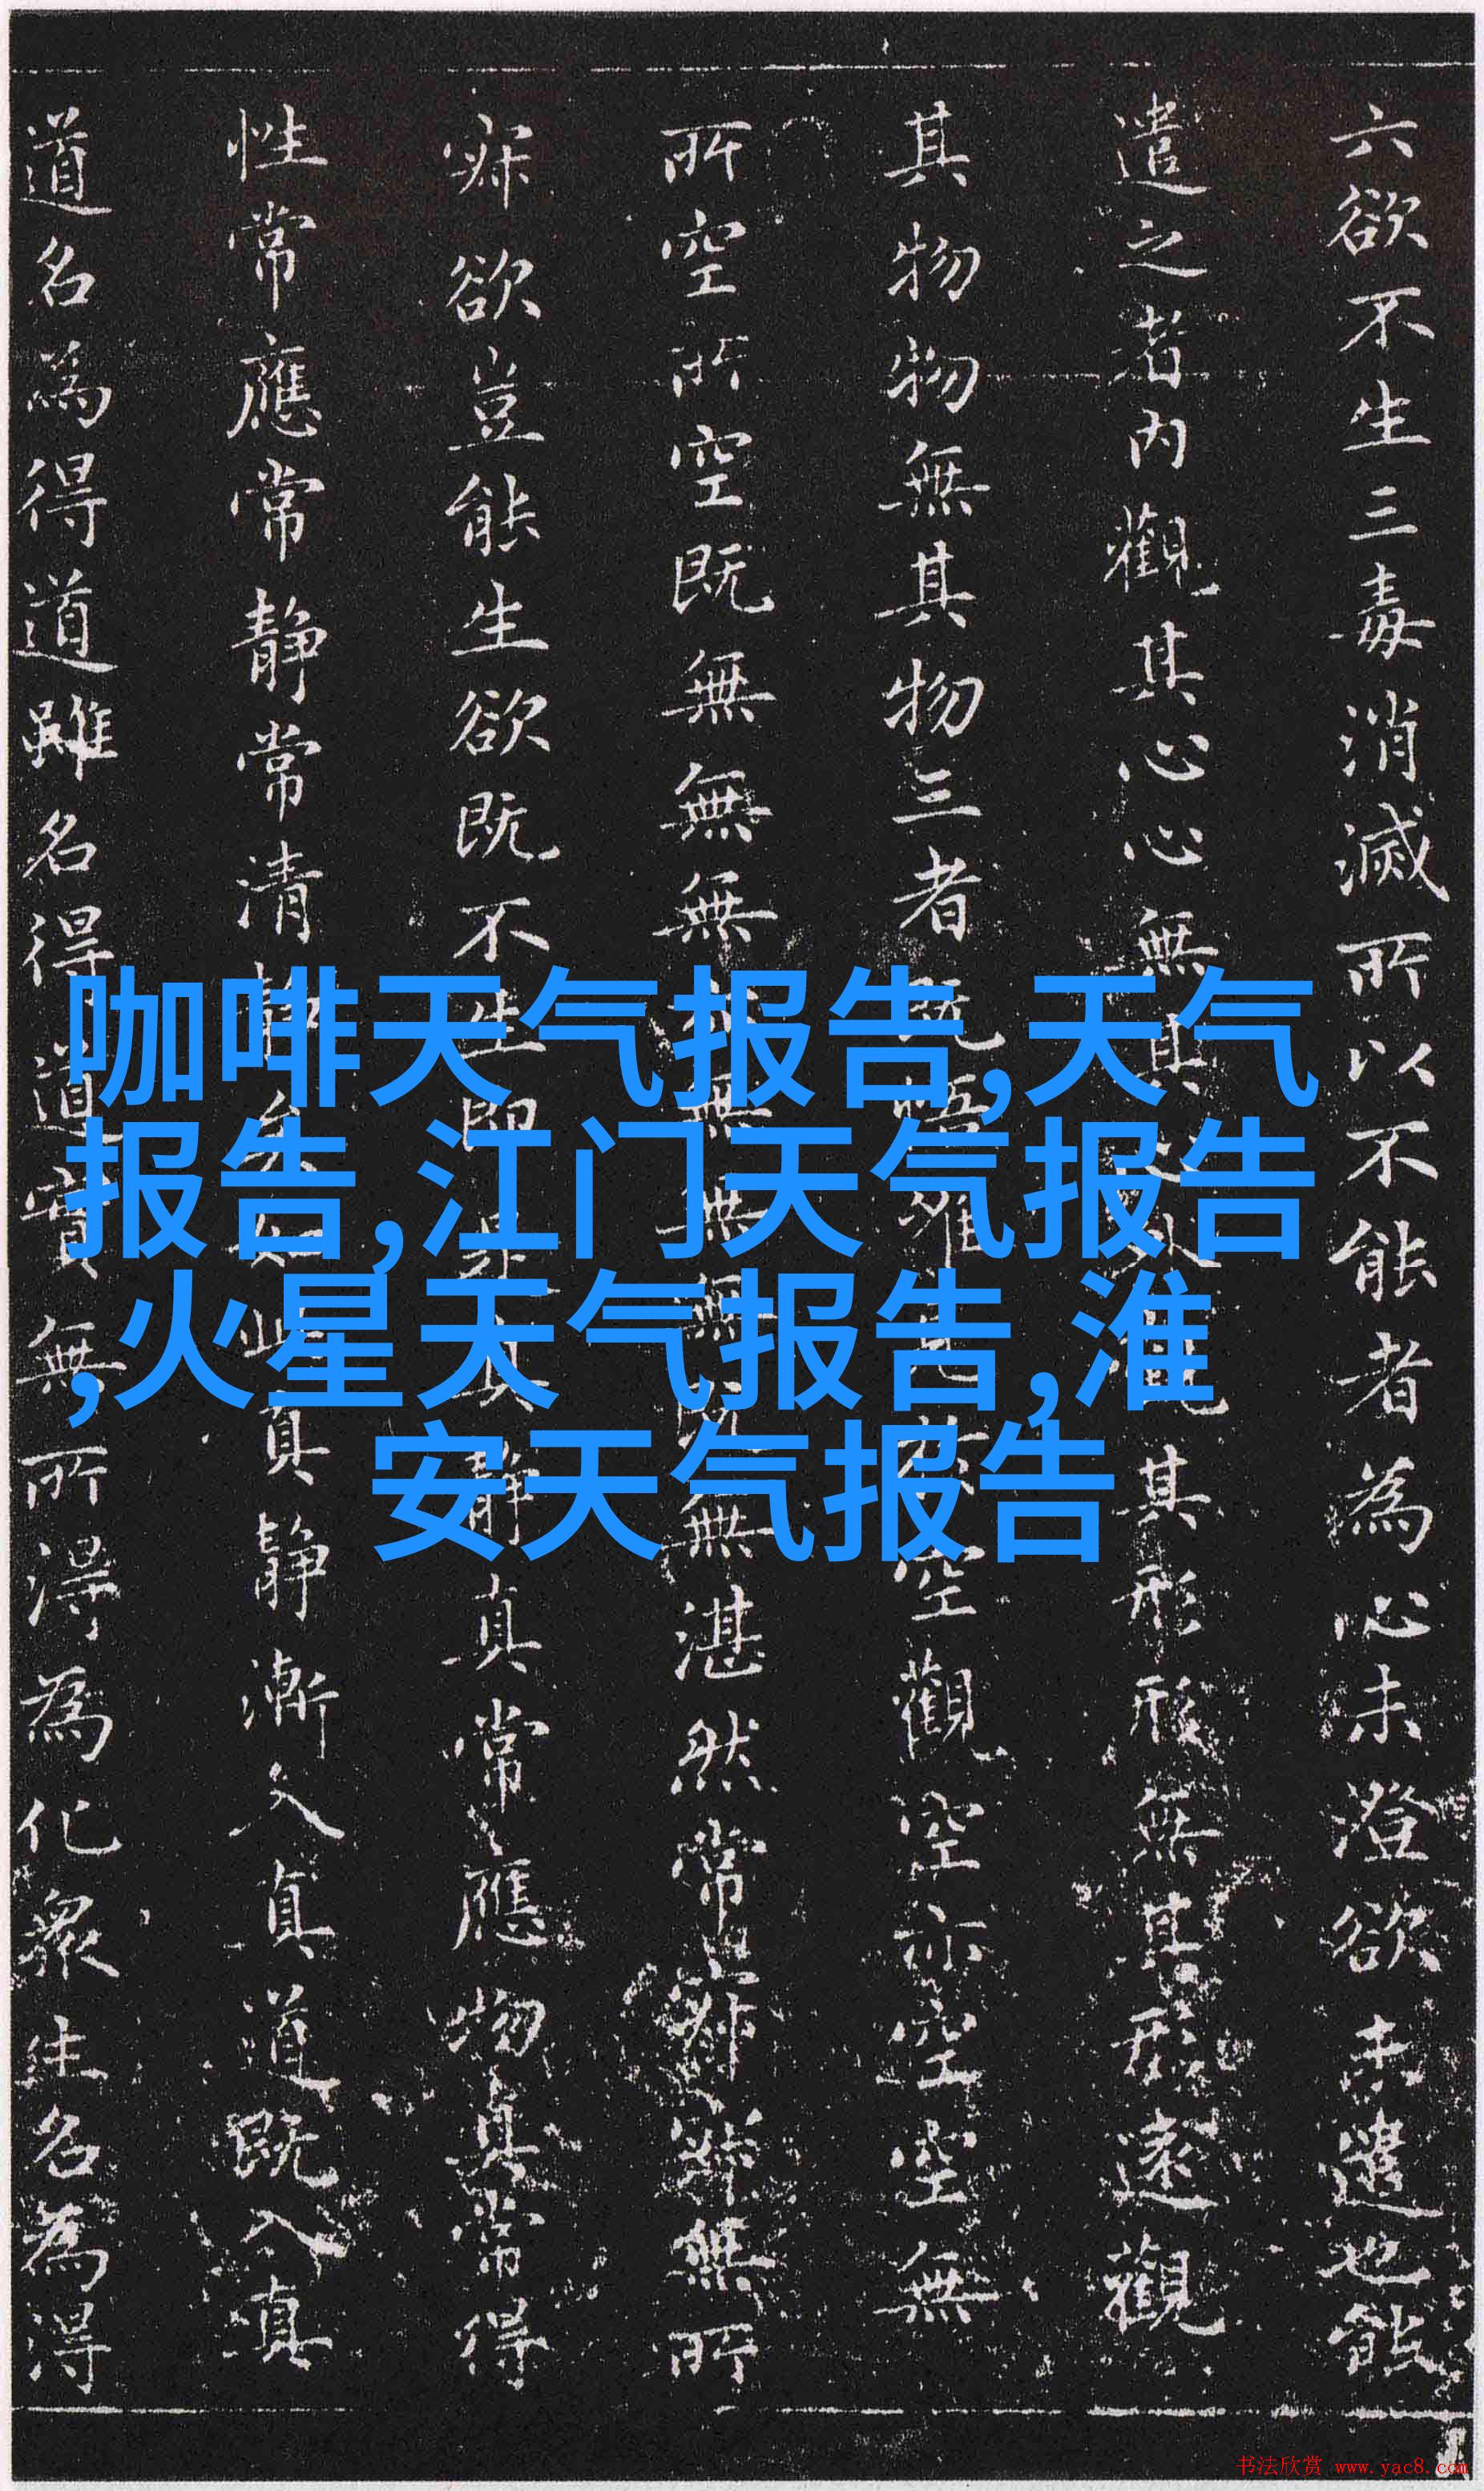 六欲不生三毒消滅所以不能者為心未澄欲未遣也能
遣之者内觀其心心無其心外觀其形形無其形遠觀
其物物無其物三者既悟唯見於空觀空亦空空無
所空所空既無無無亦無無無既無湛然常寂寂無所
寂欲豈能生欲既不生即是真静真常應物真常得
性常應常静常清静矣如此真静漸入真道既入真
道名為得道雖名得道實無所得為化衆生名為得
咖啡天气报告,天气
报告,江门天气报告
,火星天气报告,淮
安天气报告
书法欣赏 www.yac8.com